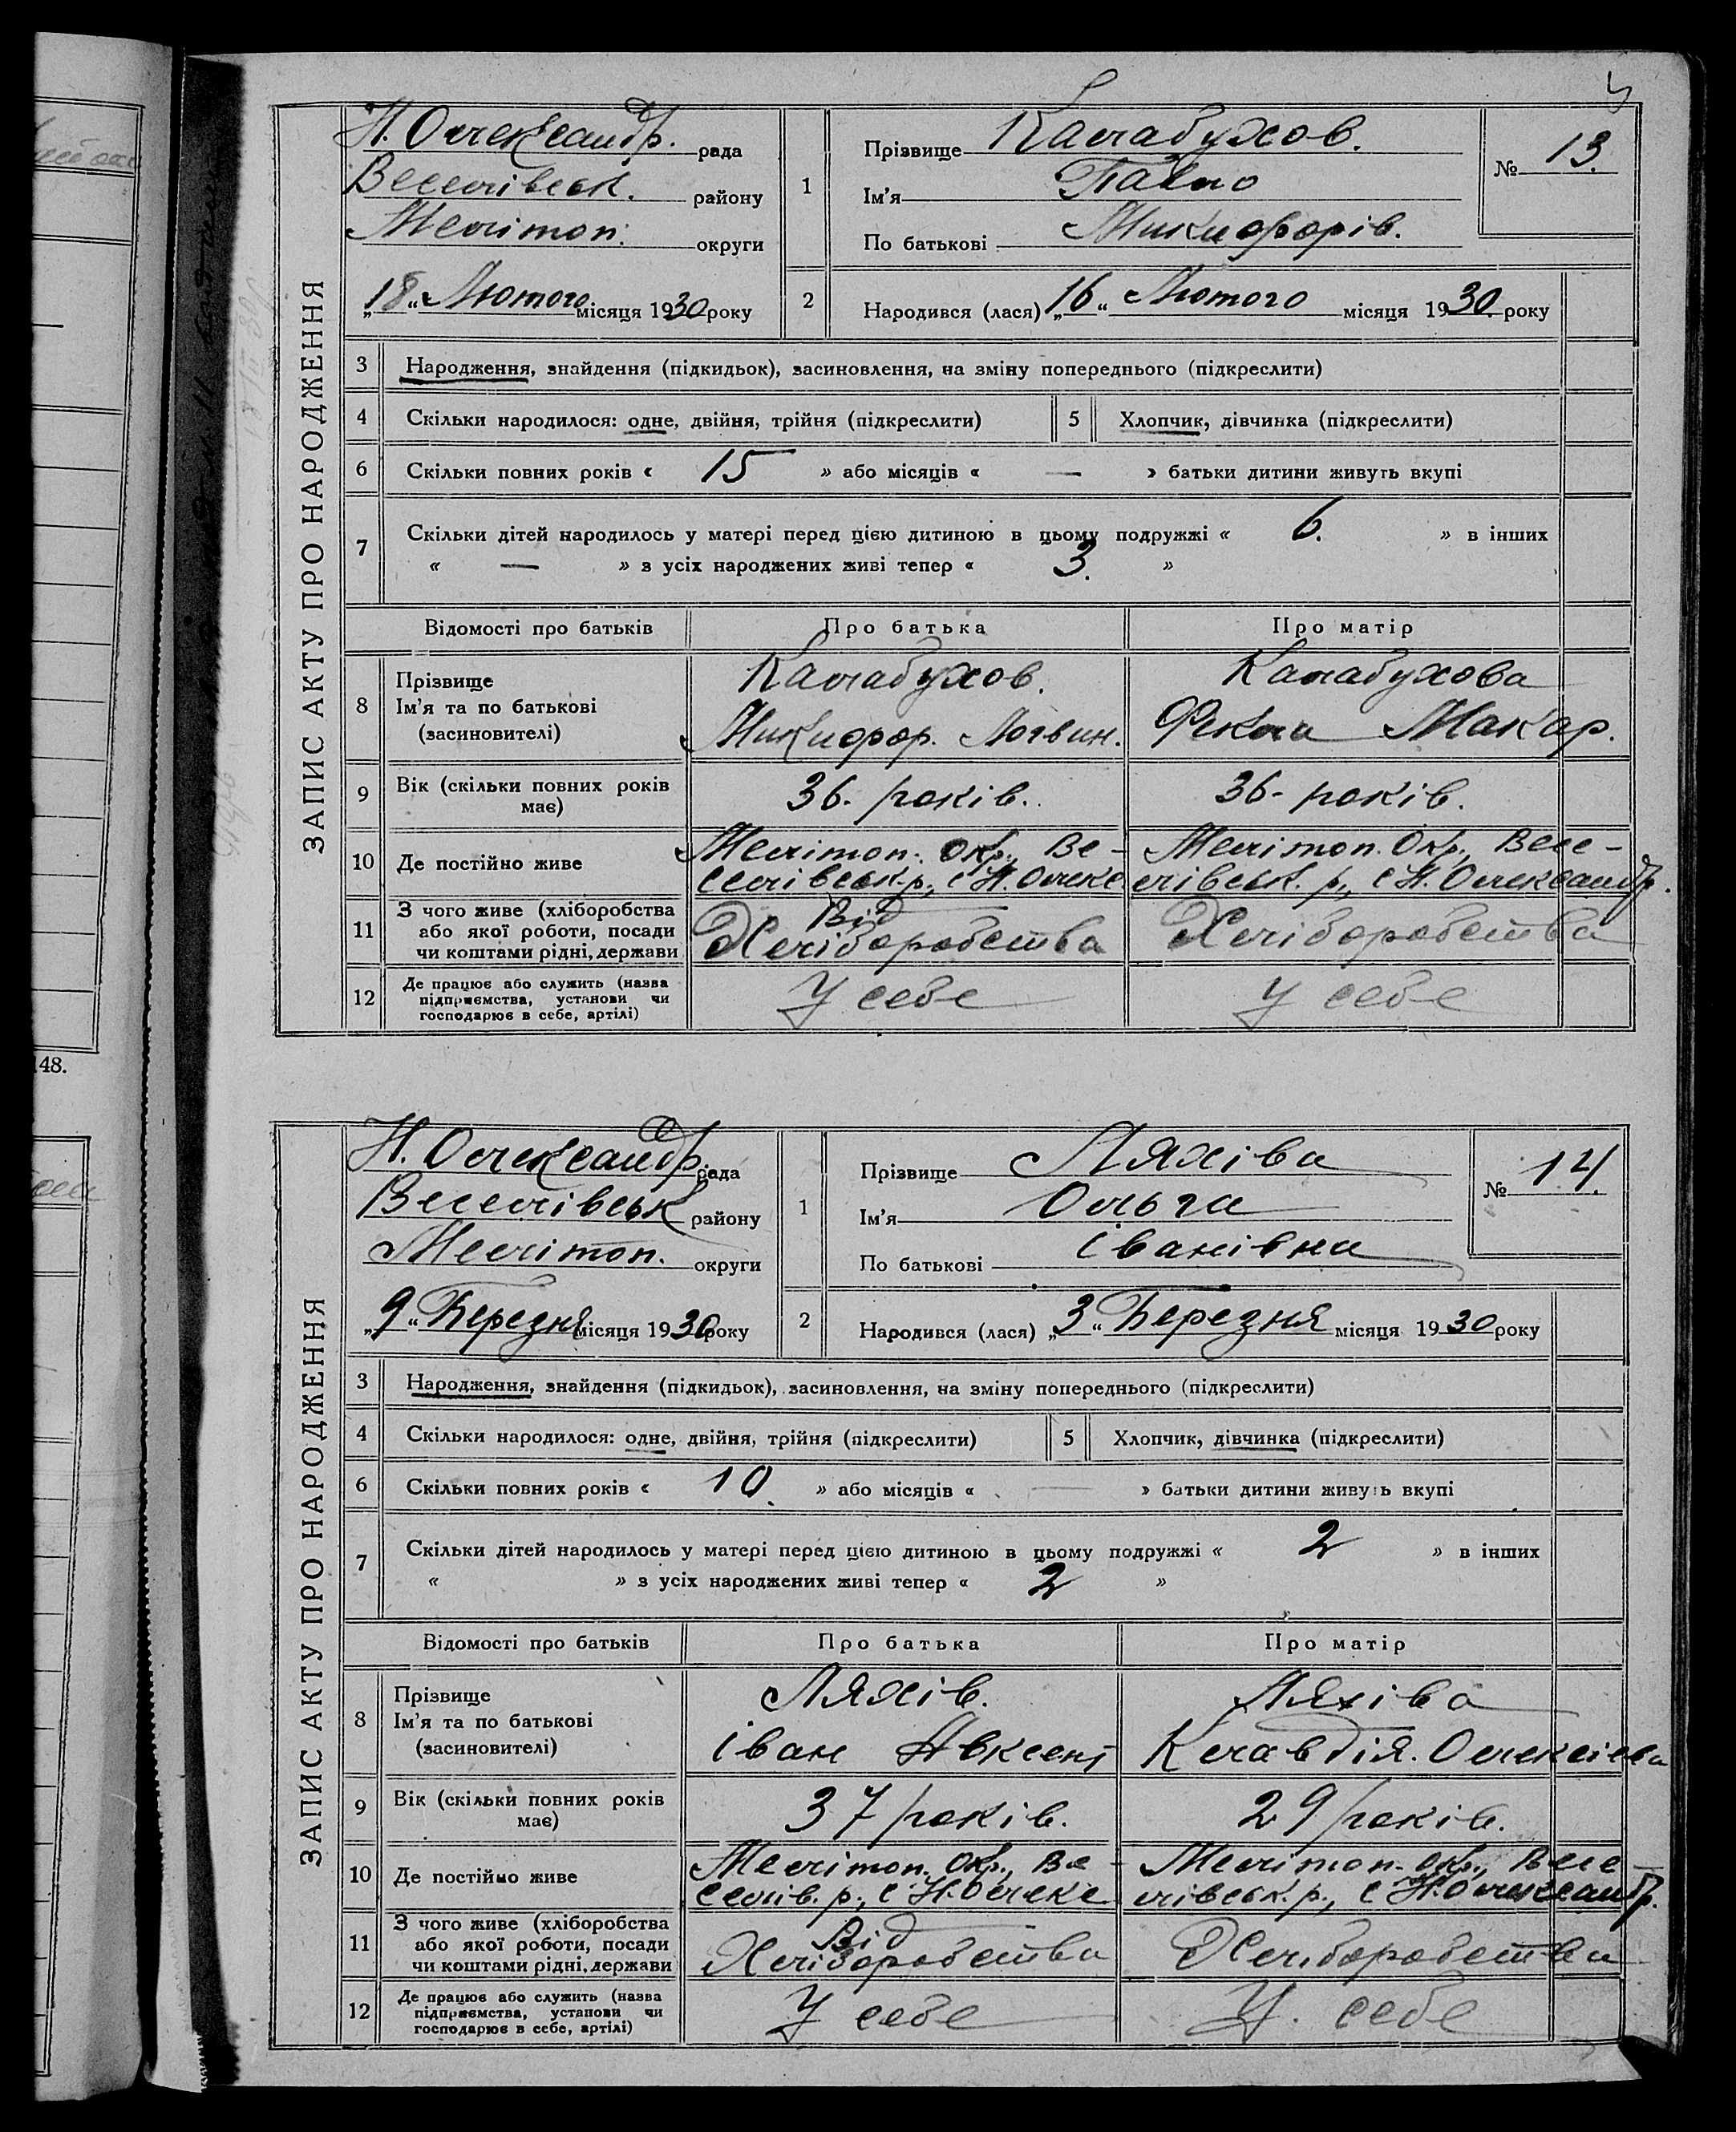 ЗАПИС АКТУ ПРО НАРОДЖЕННЯ
Н. Олександр. рада
Веселівськ. району
Меліпоп. округи
„18“ Лютого місяця 1930 року
1
Прізвище Калабухов.
Ім’я Павло
По батькові Микифорів.
№ 13.
2
Народився (лася) „16“ Лютого місяця 1930. року
3 Народження, знайдення (підкидьок), засиновлення, на зміну попереднього (підкреслити)
4 Скільки народилося: одне, двійня, трійня (підкреслити) 5 Хлопчик, дівчинка (підкреслити)
6 Скільки повних років « 15 » або місяців « — » батьки дитини живуть вкупі
7 Скільки дітей народилось у матері перед цією дитиною в цьому подружжі « 6. » в інших
« — » з усіх народжених живі тепер « 3. »
Відомості про батьків Про батька Про матір
8 Прізвище Ім’я та по батькові (засиновителі)
Калабухов. Калабухова
Микифор. Логвин. Фекла Макар.
9 Вік (скільки повних років має) 36. років. 36- років.
10 Де постійно живе
Меліпоп. окр., Ве- Меліпоп. Окр., Весе-
селівськ. р., с Н. Олекс лівськ. р., с Н. Олександр.
11 З чого живе (хліборобства або якої роботи, посади чи коштами рідні, держави
Від
Хліборобства Хліборобства
12 Де працює або служить (назва підприємства, установи чи господарює в себе, артілі)
У себе У себе
148.
ЗАПИС АКТУ ПРО НАРОДЖЕННЯ
Н. Олександр. рада
Веселівськ району
Меліпоп. округи
„9“ Березня місяця 1930 року
1
Прізвище Ляхіва
Ім’я Ольга
По батькові Іванівна
№ 14.
2
Народився (лася) „3“ Березня місяця 1930 року
3 Народження, знайдення (підкидьок), засиновлення, на зміну попереднього (підкреслити)
4 Скільки народилося: одне, двійня, трійня (підкреслити) 5 Хлопчик, дівчинка (підкреслити)
6 Скільки повних років « 10. » або місяців « — » батьки дитини живуть вкупі
7 Скільки дітей народилось у матері перед цією дитиною в цьому подружжі « 2 » в інших
« » з усіх народжених живі тепер « 2 »
Відомості про батьків Про батька Про матір
8 Прізвище Ім’я та по батькові (засиновителі)
Ляхів. Ляхіва
Іван Авксент Клавдія. Олексієва
9 Вік (скільки повних років має) 37 років. 29 років.
10 Де постійно живе
Меліпоп. Окр., Ве- Меліпоп. окр., Весе-
селів. р., с Н. Олекс лівськ. р., с Н. Олександр.
11 З чого живе (хліборобства або якої роботи, посади чи коштами рідні, держави
Від
Хліборобства Хліборобства
12 Де працює або служить (назва підприємства, установи чи господарює в себе, артілі)
У себе У. себе